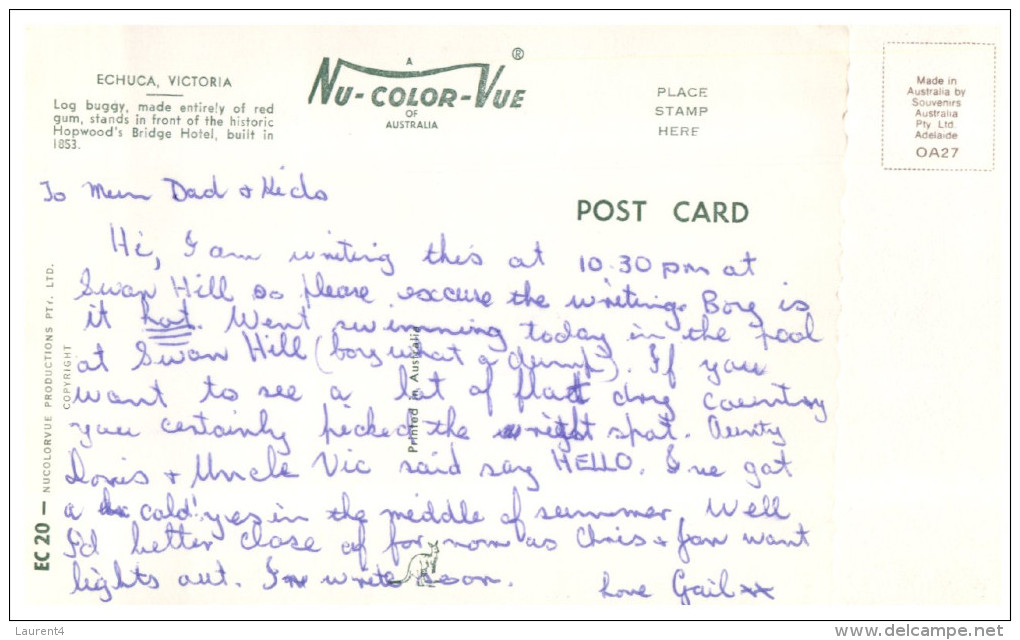 ECHUCA, VICTORIA
Log buggy, made entirely of red
gum, stands in front of the historic
Hopwood's Bridge Hotel, built in
1853.
A
NU-COLOR-VUE®
OF
AUSTRALIA
PLACE
STAMP
HERE
Made in
Australia by
Souvenirs
Australia
Pty Ltd.
Adelaide
OA27
POST CARD
To Mum Dad + Kids
Hi, I am writing this at 10.30 pm at
Swan Hill so please excuse the writing. Boy is
it hot. Went swimming today in the pool
at Swan Hill (boy what a dump). If you
want to see a lot of flat dry country
you certainly picked the right spot. Aunty
Doris + Uncle Vic said say HELLO. I've got
a cold! yes in the middle of summer, Well
I'd better close of for now as Chris + Jan want
lights out. write soon.
Love Gail xx
EC 20 — NUCOLORVUE PRODUCTIONS PTY. LTD.
COPYRIGHT
Printed in Australia
Laurent4
www.delcampe.net